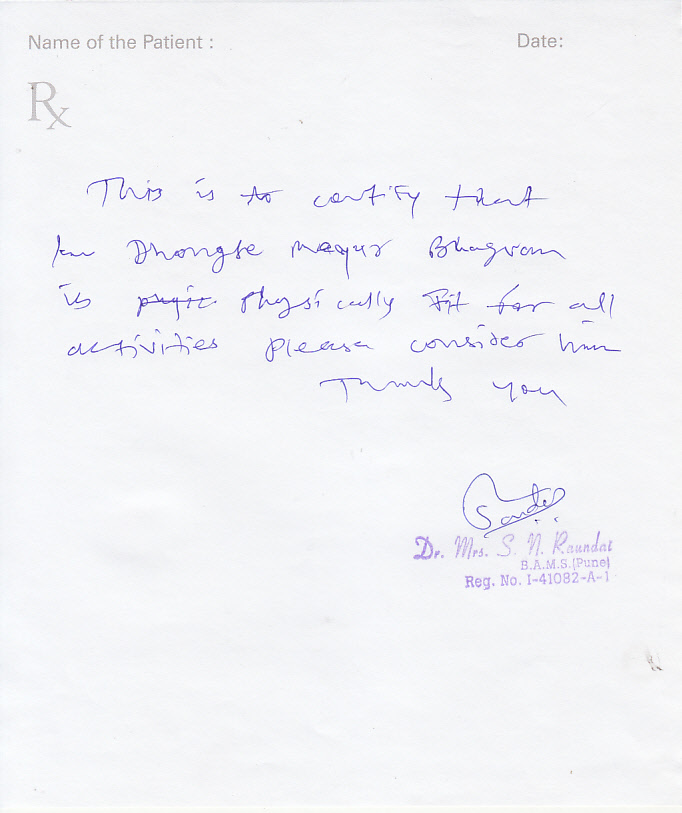 Name of the Patient : Date:
Rx
This is to certify that
Dhongse Mayur Bhagvan
is physically Fit for all
activities please consider him
Thank you
Dr. Mrs. S. N. Raundal
B.A.M.S.(Pune)
Reg. No. I-41082-A-1